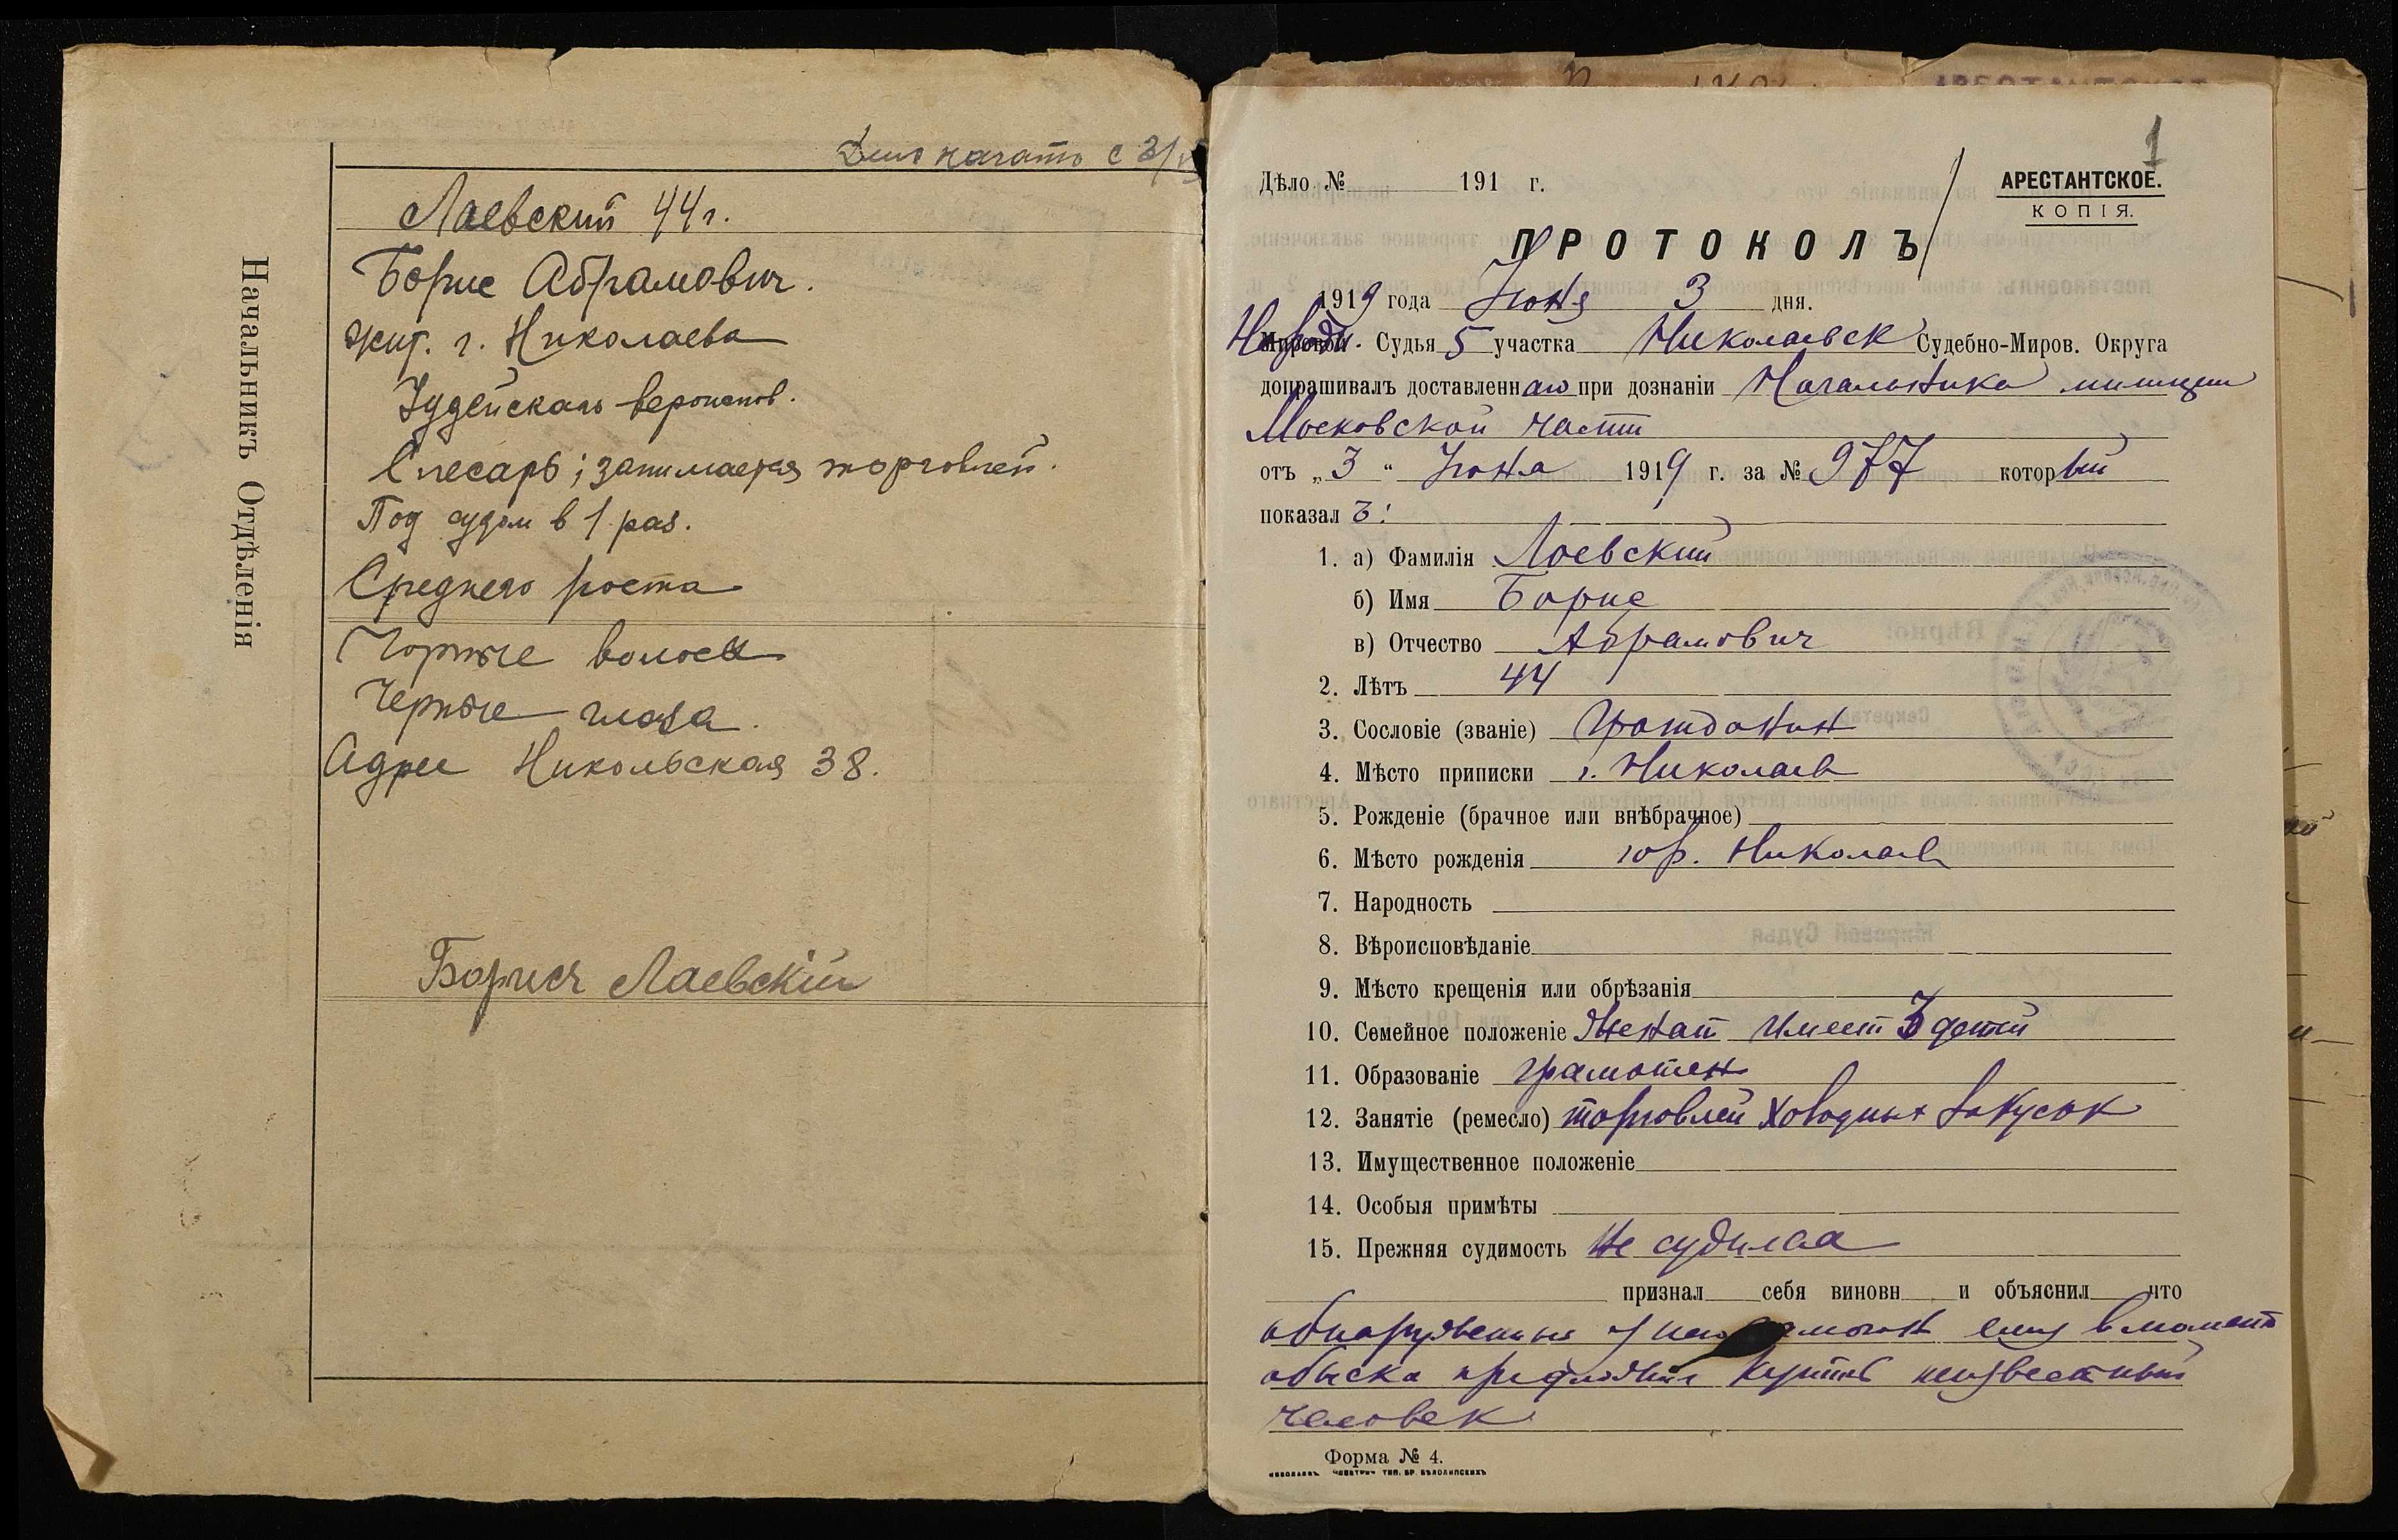 Дело начато с 3/VI
Начальникъ Отдѣленія
Лаевский 44 г.
Борис Абрамович.
жит. г. Николаева
Іудейскаго вероиспов.
Слесарь; занимается торговлей.
Под судом в 1 раз.
Среднего роста
Чорные волосы
Черные глаза.
Адрес Никольская 38.
Борисъ Лаевскій
1
Дѣло № 191 г.
АРЕСТАНТСКОЕ.
КОПІЯ.
ПРОТОКОЛЪ
1919 года Июня 3 дня.
Народн. Судья 5 участка Николаевск Судебно-Миров. Округа
допрашивалъ доставленнаго при дознаніи Начальника милиции
Московской части
отъ „3" Июня 1919 г. за № 977 который
показалъ:
1. а) Фамилія Лаевский
б) Имя Борис
в) Отчество Абрамович
2. Лѣтъ 44
3. Сословіе (званіе) Гражданин
4. Мѣсто приписки г. Николаев
5. Рожденіе (брачное или внѣбрачное)
6. Мѣсто рожденія гор. Николаев
7. Народность
8. Вѣроисповѣданіе
9. Мѣсто крещенія или обрѣзанія
10. Семейное положеніе Женат имеет 3 детей
11. Образованіе грамотен
12. Занятіе (ремесло) торговлей холодных закусок
13. Имущественное положеніе
14. Особыя примѣты
15. Прежняя судимость не судился
признал себя виновн и объяснил что
обнаруженный у него ему в момент
обыска предложил купить неизвестный
человек
Форма № 4.